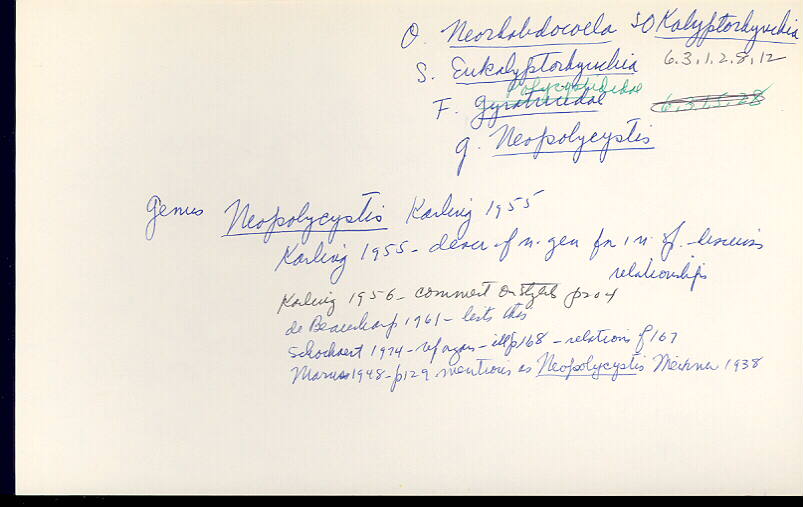 O. Neorhabdocoela SO Kalyptorhynchia
S. Eukalyptorhynchia 6.3.1.2.8.12
Polycystididae
F. Gyratricidae 6.3.15.28
g. Neopolycystis
Genus Neopolycystis Karling 1955
Karling 1955 - descr of n. gen for 1 n. sp. - discuss
relationships
Karling 1956 - comment on stylet p 204
de Beauchamp 1961 - lists this
Schockaert 1974 - ref agns - ill p168 - relations p 167
Marcus 1948 - p129 mentions as Neopolycystis Meixner 1938